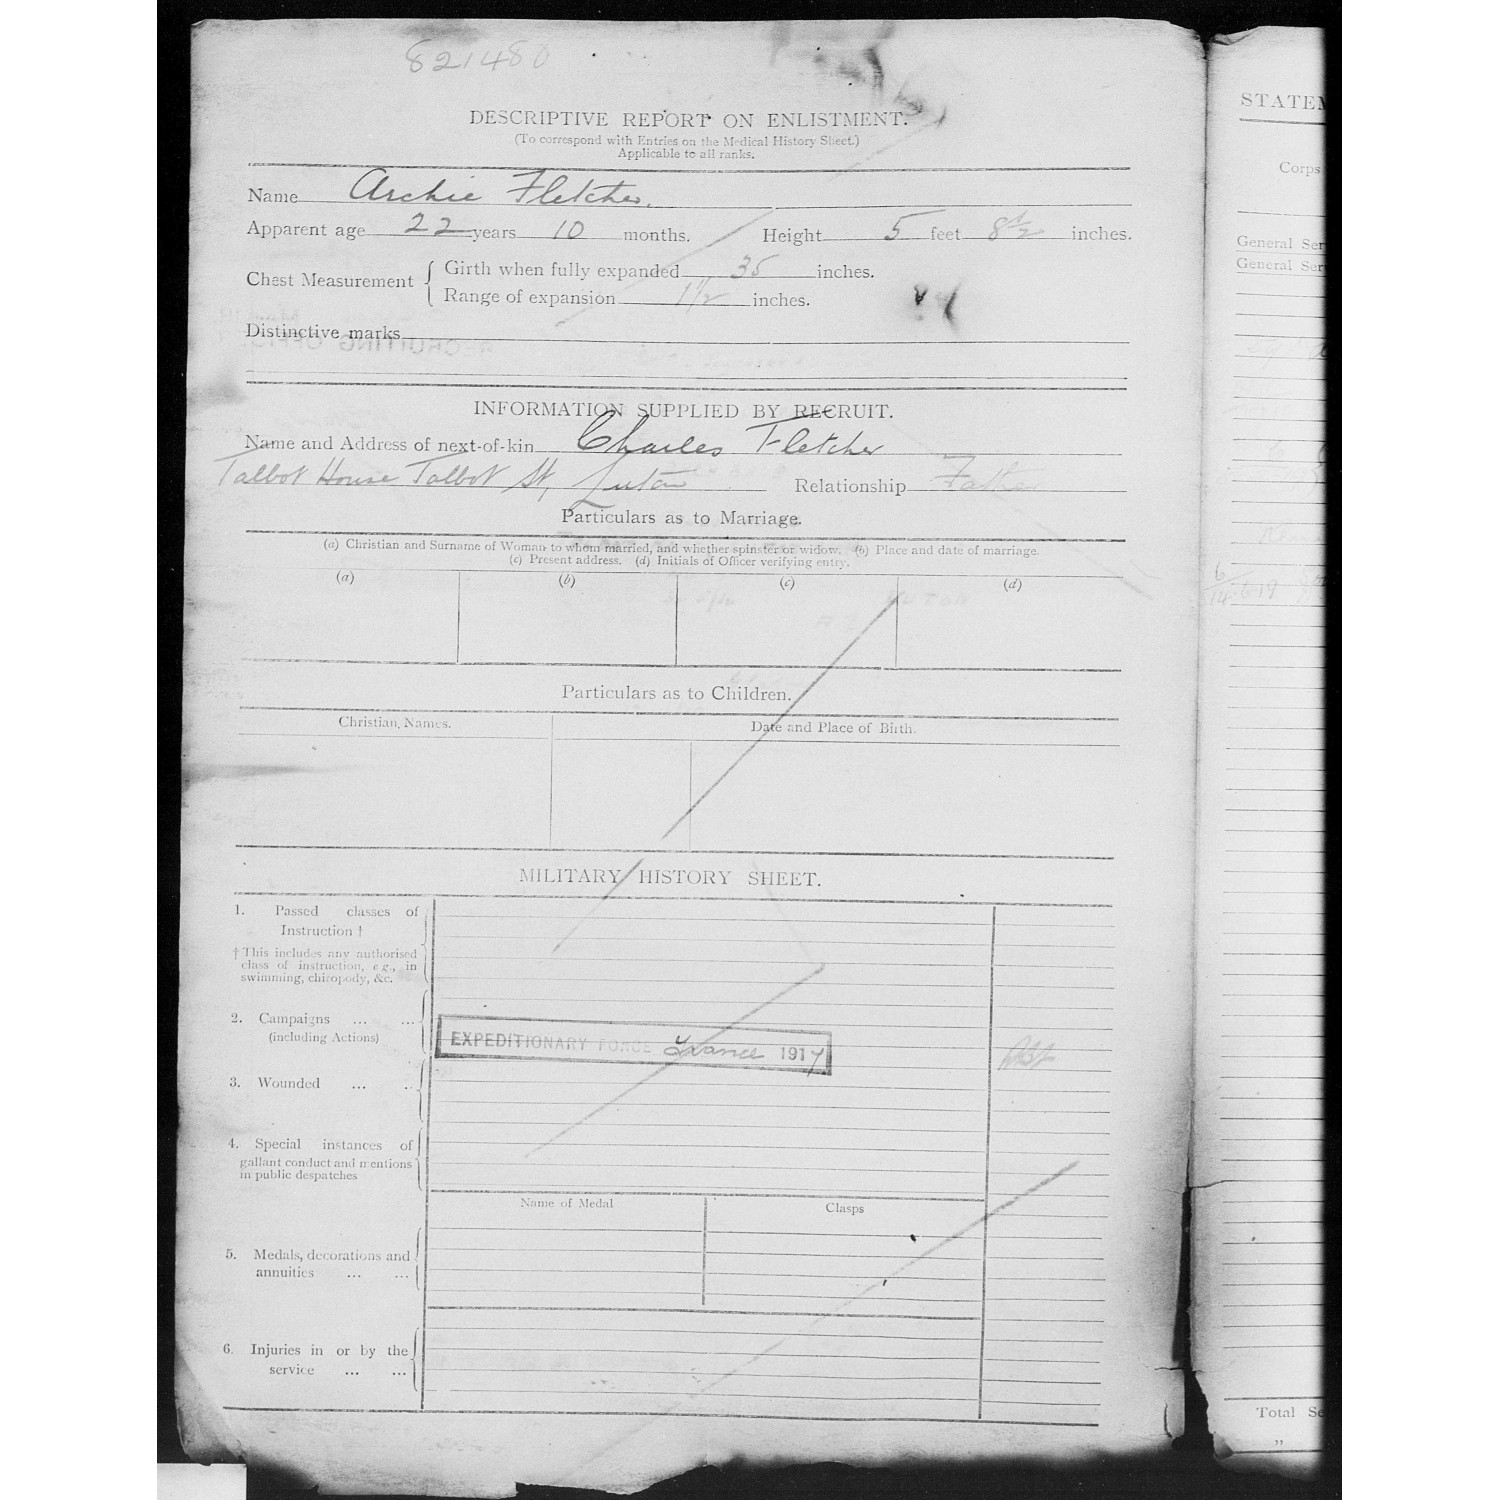 821480
DESCRIPTIVE REPORT ON ENLISTMENT.
(To correspond with Entries on the Medical History Sheet.)
Applicable to all ranks.
Name Archie Fletcher.
Apparent age 22 years 10 months. Height 5 feet 8½ inches.
Chest Measurement { Girth when fully expanded 35 inches.
Range of expansion 1½ inches.
Distinctive marks
INFORMATION SUPPLIED BY RECRUIT.
Name and Address of next-of-kin Charles Fletcher
Talbot House Talbot St, Luton Relationship Father
Particulars as to Marriage.
(a) Christian and Surname of Woman to whom married, and whether spinster or widow. (b) Place and date of marriage.
(c) Present address. (d) Initials of Officer verifying entry.
(a) (b) (c) (d)
Particulars as to Children.
Christian Names. Date and Place of Birth.
MILITARY HISTORY SHEET.
1. Passed classes of
Instruction †
† This includes any authorised
class of instruction, e.g., in
swimming, chiropody, &c.
2. Campaigns ... ...
(including Actions)
EXPEDITIONARY FORCE France 1917
3. Wounded ... ..
4. Special instances of
gallant conduct and mentions
in public despatches
Name of Medal Clasps
5. Medals, decorations and
annuities ... ...
6. Injuries in or by the
service ... ...
STATEM
Corps
General Ser
General Ser
Total Se
"